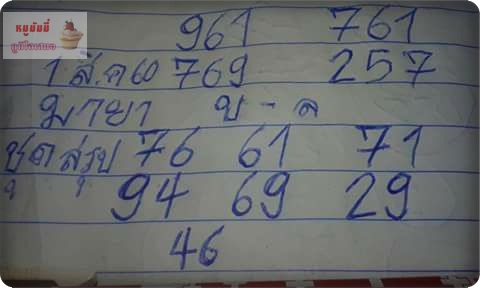 หมูบันนี่
961 761
1 ส.ค 60 769 257
มายา บ - ล
ชุดสรุป 76 61 71
94 69 29
46